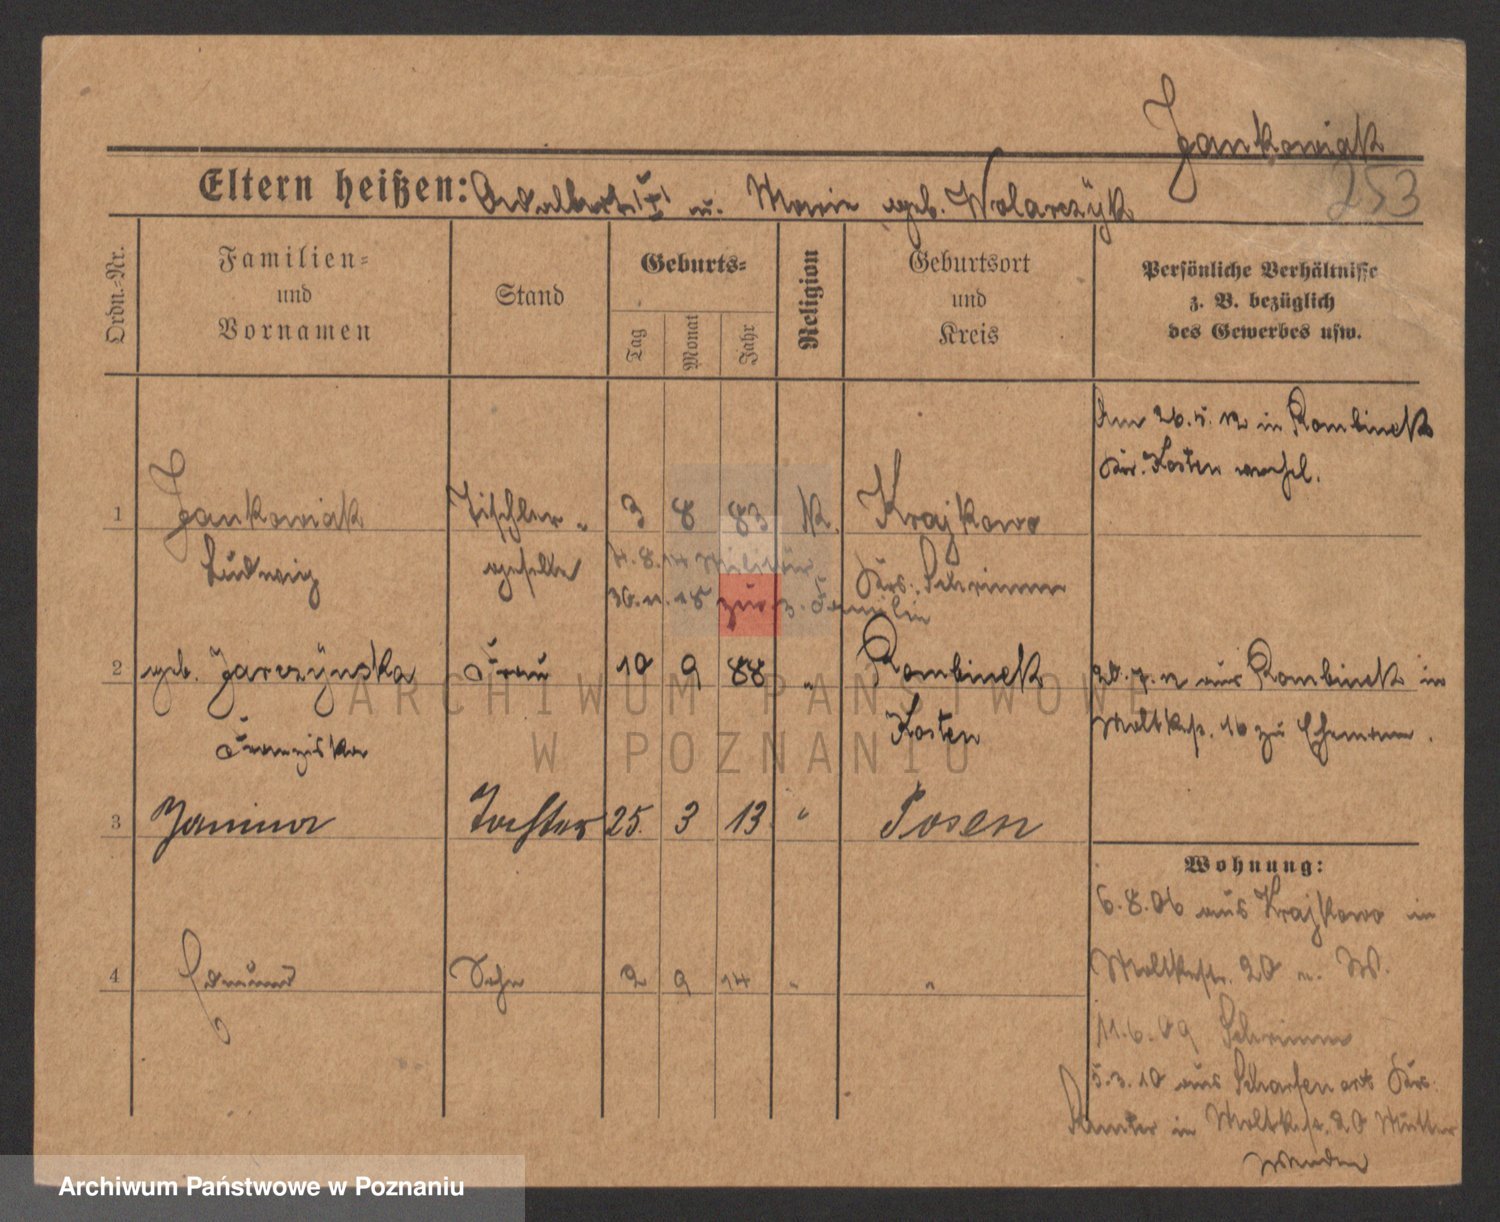 Jankowiak
253
Eltern heißen: Adalbert u. Marie geb. Wolarczÿk
Ordn.-Nr.
Familien-
und
Vornamen
Stand
Geburts-
Tag
Monat
Jahr
Religion
Geburtsort
und
Kreis
Persönliche Verhältnisse
z. B. bezüglich
des Gewerbes usw.
Am 26.5.12 in Rombinek
Krs. Kosten verehel.
1 Jankowiak Tischler- 3 8 83 K. Krajkowo
Ludwig geselle 4.8.14 Militär Krs. Schrimm
30.11.18 zur Familie
2 geb. Jarczÿnska Frau 10 9 88 " Rombinek
Franziska Kosten
20.7.12 aus Rombinek in
Moltkestr. 16 zu Ehemann.
3 Janina Tochter 25. 3 13 " Posen
Wohnung:
6.8.06 aus Krajkowo in
Moltkestr. 20 n. W.
4 Edmund Sohn 2 9 14 " "
11.6.09 Schrimm
5.3.10 aus Scharfenort Krs.
Samter in Moltkestr. 20 Mutter
ARCHIWUM PAŃSTWOWE
W POZNANIU
Archiwum Państwowe w Poznaniu